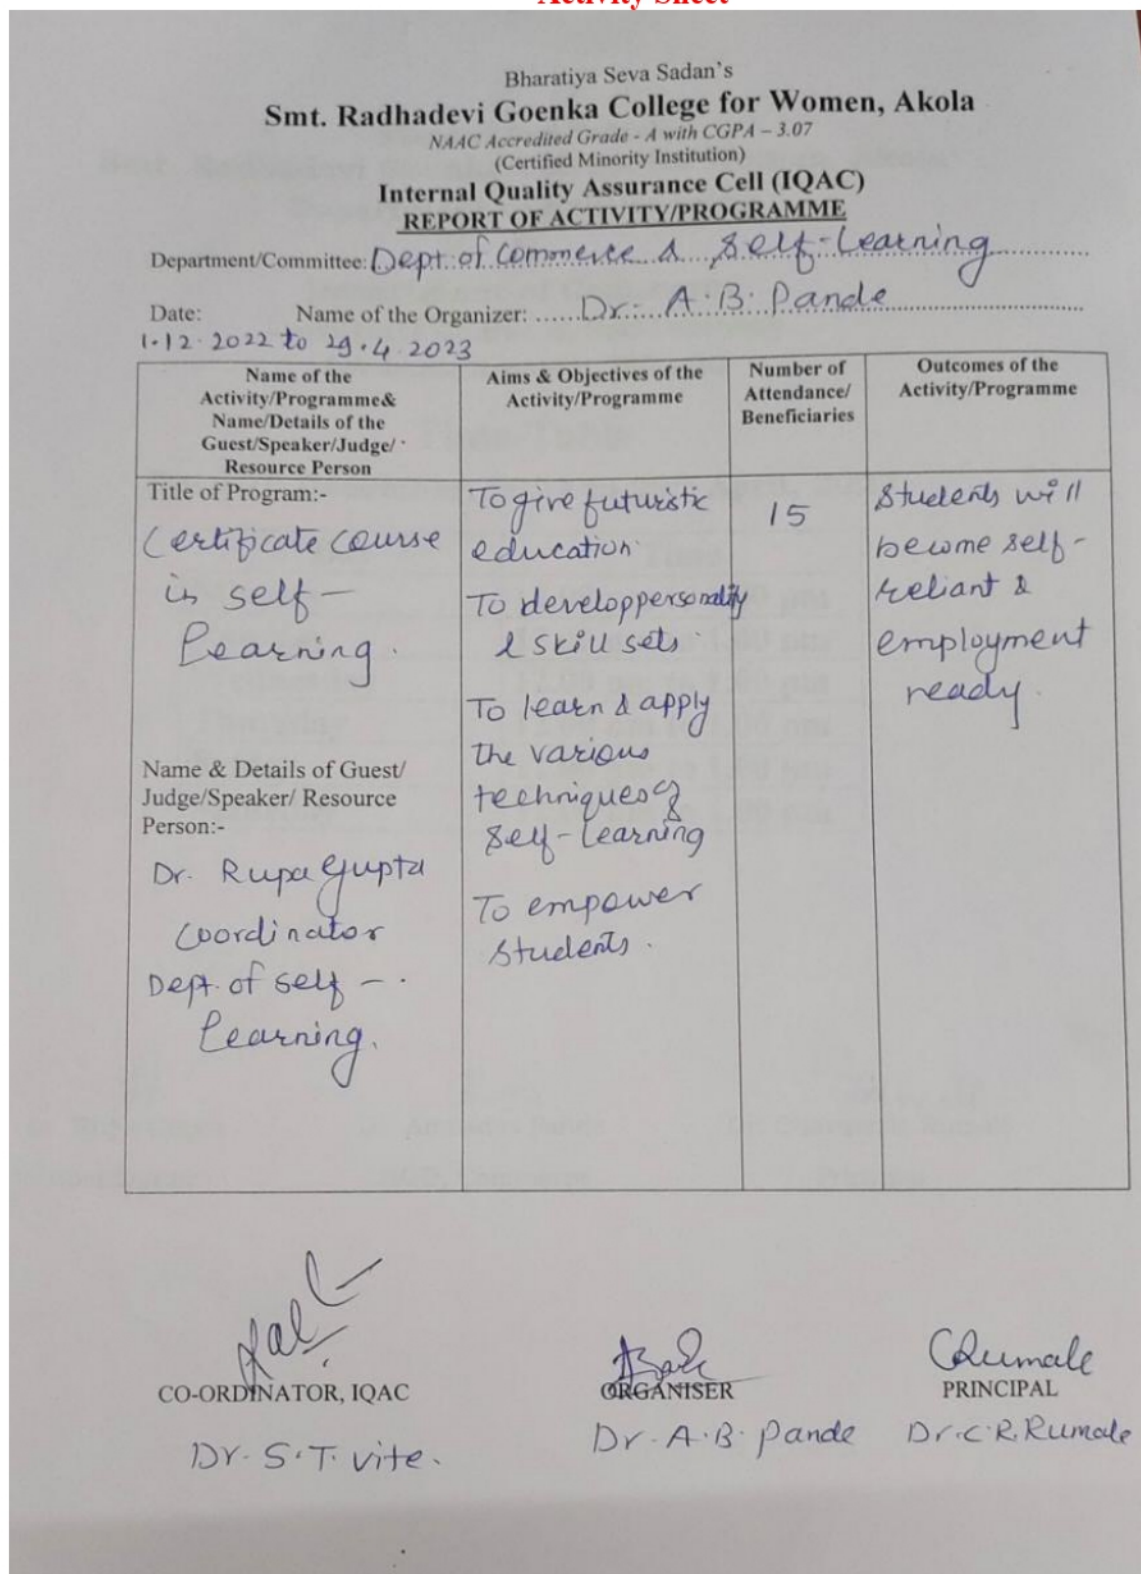 Activity Sheet
Bharatiya Seva Sadan's
Smt. Radhadevi Goenka College for Women, Akola
NAAC Accredited Grade - A with CGPA – 3.07
(Certified Minority Institution)
Internal Quality Assurance Cell (IQAC)
REPORT OF ACTIVITY/PROGRAMME
Department/Committee: Dept. of Commerce & Self-Learning
Date: Name of the Organizer: Dr. A.B. Pande
1.12.2022 to 29.4.2023
Name of the
Activity/Programme&
Name/Details of the
Guest/Speaker/Judge/
Resource Person
Aims & Objectives of the
Activity/Programme
Number of
Attendance/
Beneficiaries
Outcomes of the
Activity/Programme
Title of Program:-
Certificate course
in self-
Learning.
Name & Details of Guest/
Judge/Speaker/ Resource
Person:-
Dr. Rupa Gupta
Coordinator
Dept. of self -
Learning.
To give futuristic
education.
To develop personality
& skill sets.
To learn & apply
the various
techniques of
Self-Learning
To empower
Students.
15
Students will
become self-
reliant &
employment
ready.
CO-ORDINATOR, IQAC
Dr. S.T. Vite.
ORGANISER
Dr. A.B. Pande
CRumale
PRINCIPAL
Dr. C.R. Rumale